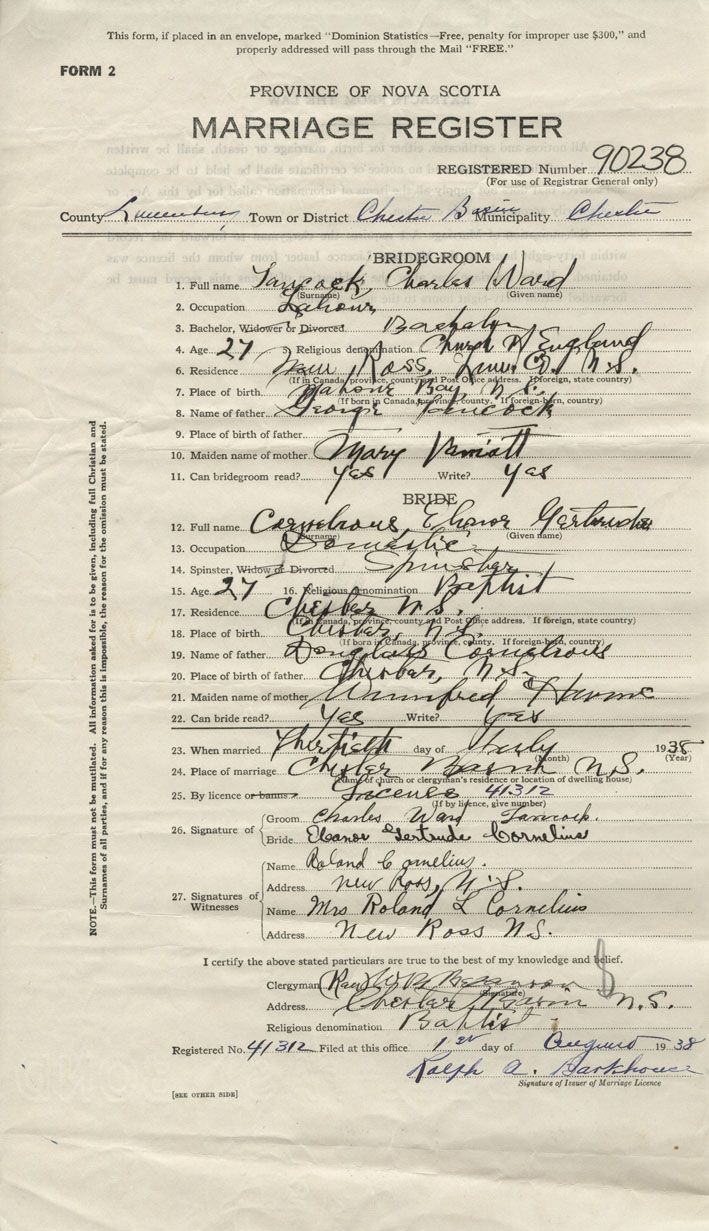 This form, if placed in an envelope, marked "Dominion Statistics—Free, penalty for improper use $300," and
properly addressed will pass through the Mail "FREE."
FORM 2
PROVINCE OF NOVA SCOTIA
MARRIAGE REGISTER
REGISTERED Number 90238
(For use of Registrar General only)
County Lunenburg, Town or District Chester Basin Municipality Chester
BRIDEGROOM
1. Full name Tancock, Charles Ward
(Surname) (Given name)
2. Occupation Labour
3. Bachelor, Widower or Divorced Bachelor
4. Age 27 5. Religious denomination Church of England
6. Residence New Ross, Lun. Co. N.S.
(If in Canada, province, county and Post Office address. If foreign, state country)
7. Place of birth Mahone Bay N.S.
(If born in Canada, province, county. If foreign-born, country)
8. Name of father George Tancock
9. Place of birth of father
10. Maiden name of mother Mary
11. Can bridegroom read? Yes Write? Yes
BRIDE
12. Full name Elanor Gertrude
(Surname) (Given name)
13. Occupation Domestic
14. Spinster, Widow or Divorced Spinster
15. Age 27 16. Religious denomination Baptist
17. Residence Chester N.S.
(If in Canada, province, county and Post Office address. If foreign, state country)
18. Place of birth Chester, N.S.
(If born in Canada, province, county. If foreign-born, country)
19. Name of father Douglass
20. Place of birth of father Chester, N.S.
21. Maiden name of mother
22. Can bride read? Yes Write? Yes
23. When married Thirtieth day of July 1938
(Month) (Year)
24. Place of marriage Chester Basin N.S.
(Name of church or clergyman's residence or location of dwelling house)
25. By licence or banns License 41312
(If by licence, give number)
26. Signature of
Groom Charles Ward Tancock.
Bride Elanor Gertrude Cornelius
27. Signatures of Witnesses
Name Roland Cornelius.
Address New Ross, N.S.
Name Mrs Roland L Cornelius
Address New Ross N.S.
I certify the above stated particulars are true to the best of my knowledge and belief.
Clergyman (Rev)
(Signature)
Address Chester Basin N.S.
Religious denomination Baptist
Registered No. 41312 Filed at this office 1st day of August 1938
Ralph A. Barkhouse
Signature of Issuer of Marriage Licence
[SEE OTHER SIDE]
NOTE.—This form must not be mutilated. All information asked for is to be given, including full Christian and
Surnames of all parties, and if for any reason this is impossible, the reason for the omission must be stated.